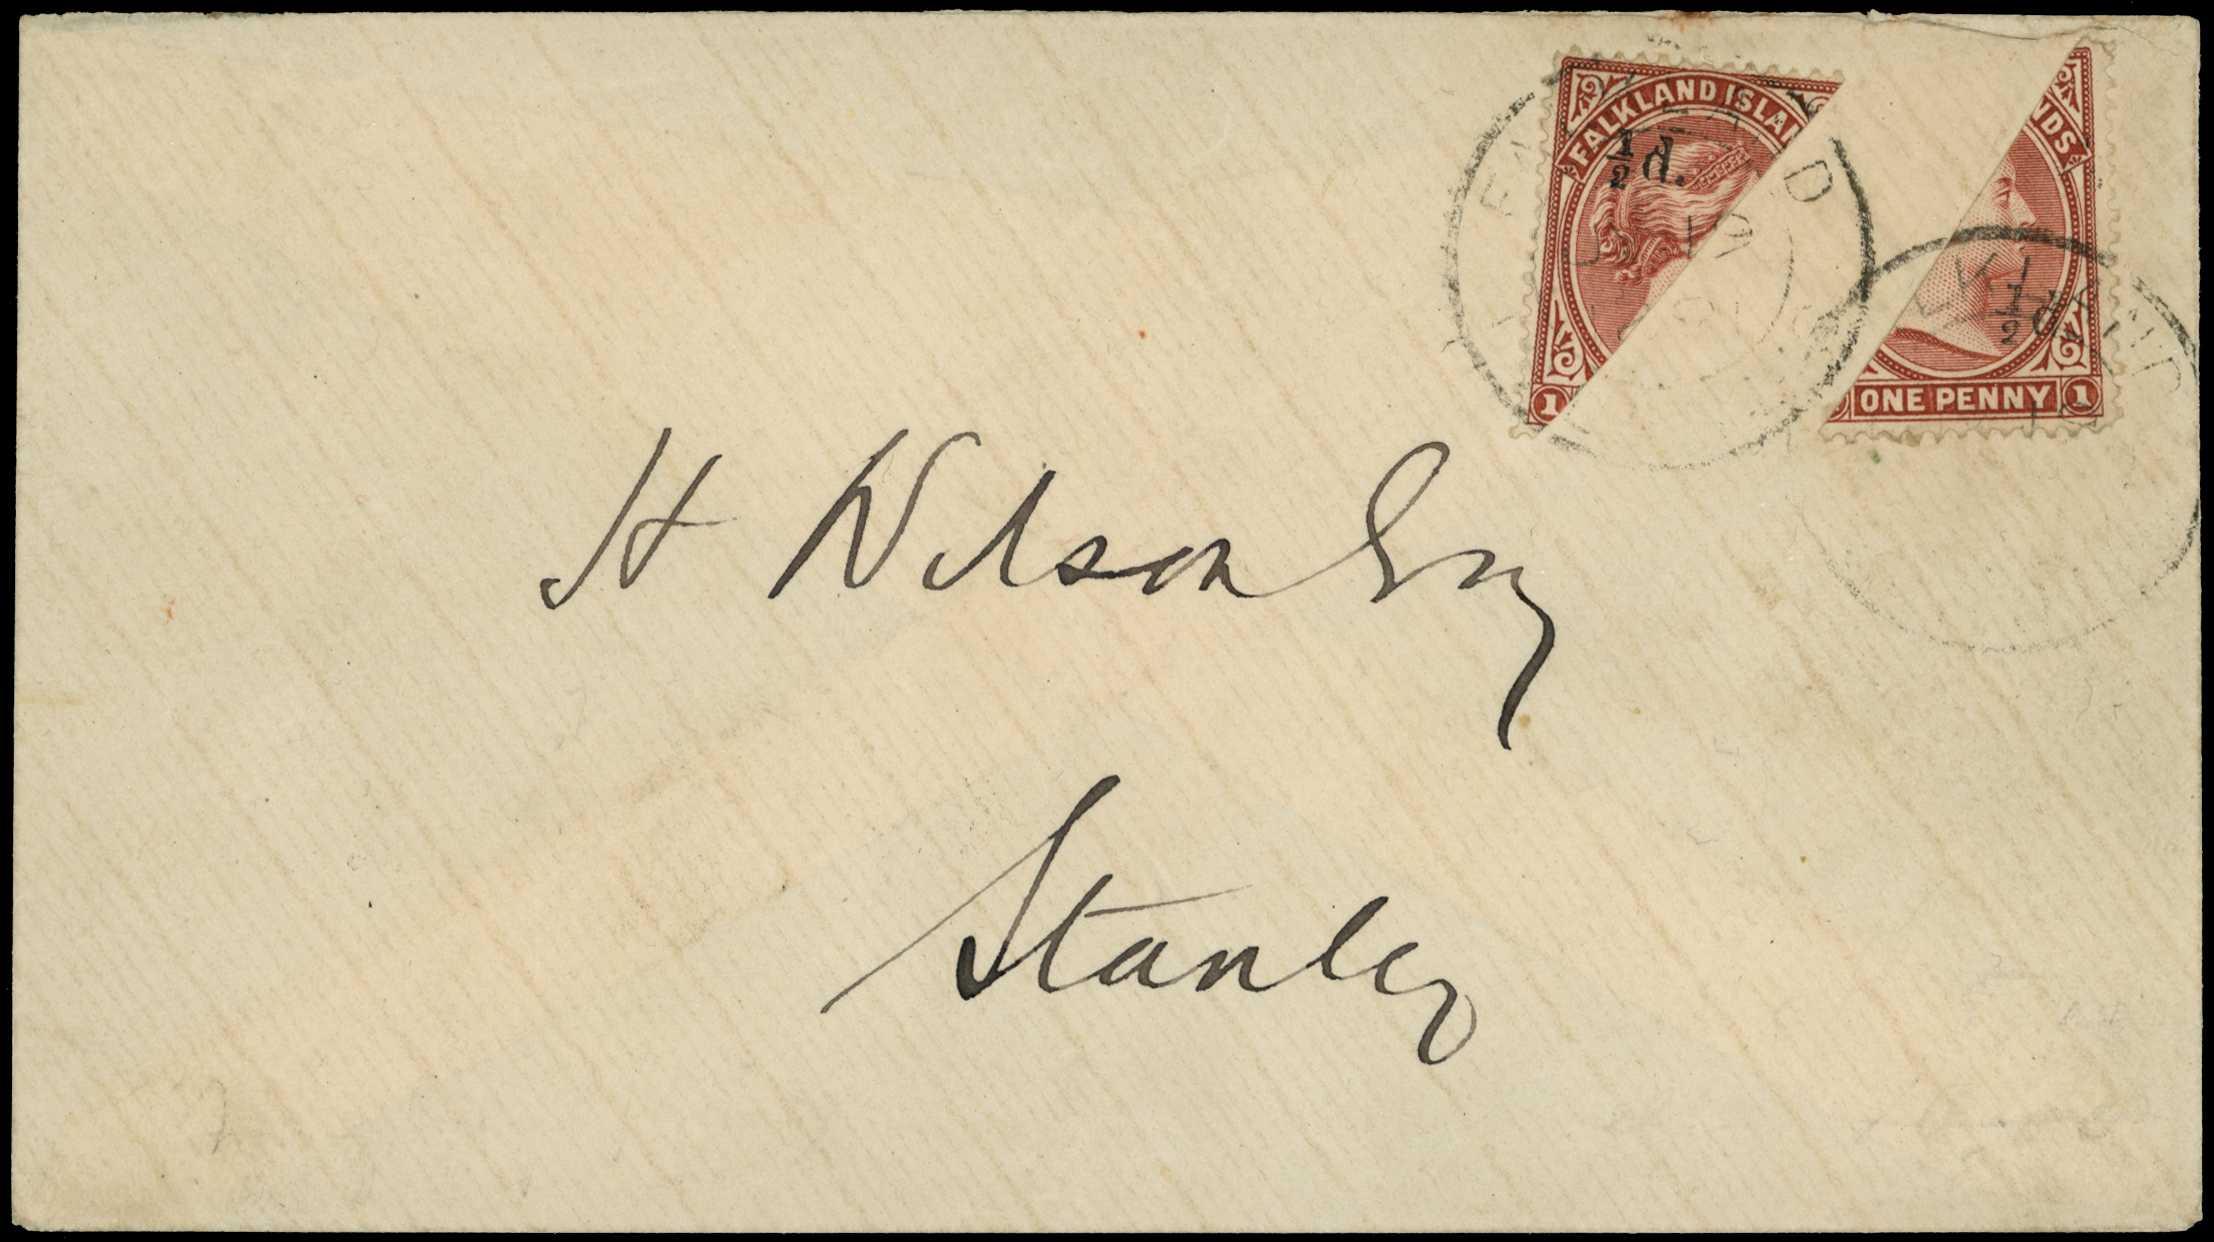 FALKLAND ISLA
½d.
1
NDS
½d
ONE PENNY 1
H Wilson Esq
Stanley